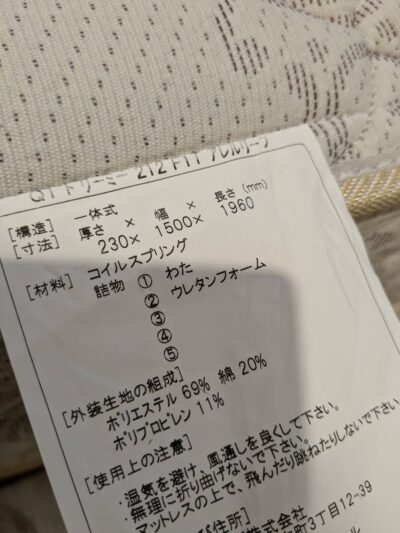 Q1 ドリーミー 212 F1
[構造] 一体式
[寸法] 厚さ × 幅 × 長さ(mm)
230× 1500× 1960
[材料] コイルスプリング
詰物 ① わた
② ウレタンフォーム
③
④
⑤
[外装生地の組成]
ポリエステル 69% 綿 20%
ポリプロピレン 11%
[使用上の注意]
・湿気を避け、風通しを良くして下さい。
・無理に折り曲げないで下さい。
マットレスの上で、飛んだり跳ねたりしないで下さい
び住所]
株式会社
町3丁目12-39
ル